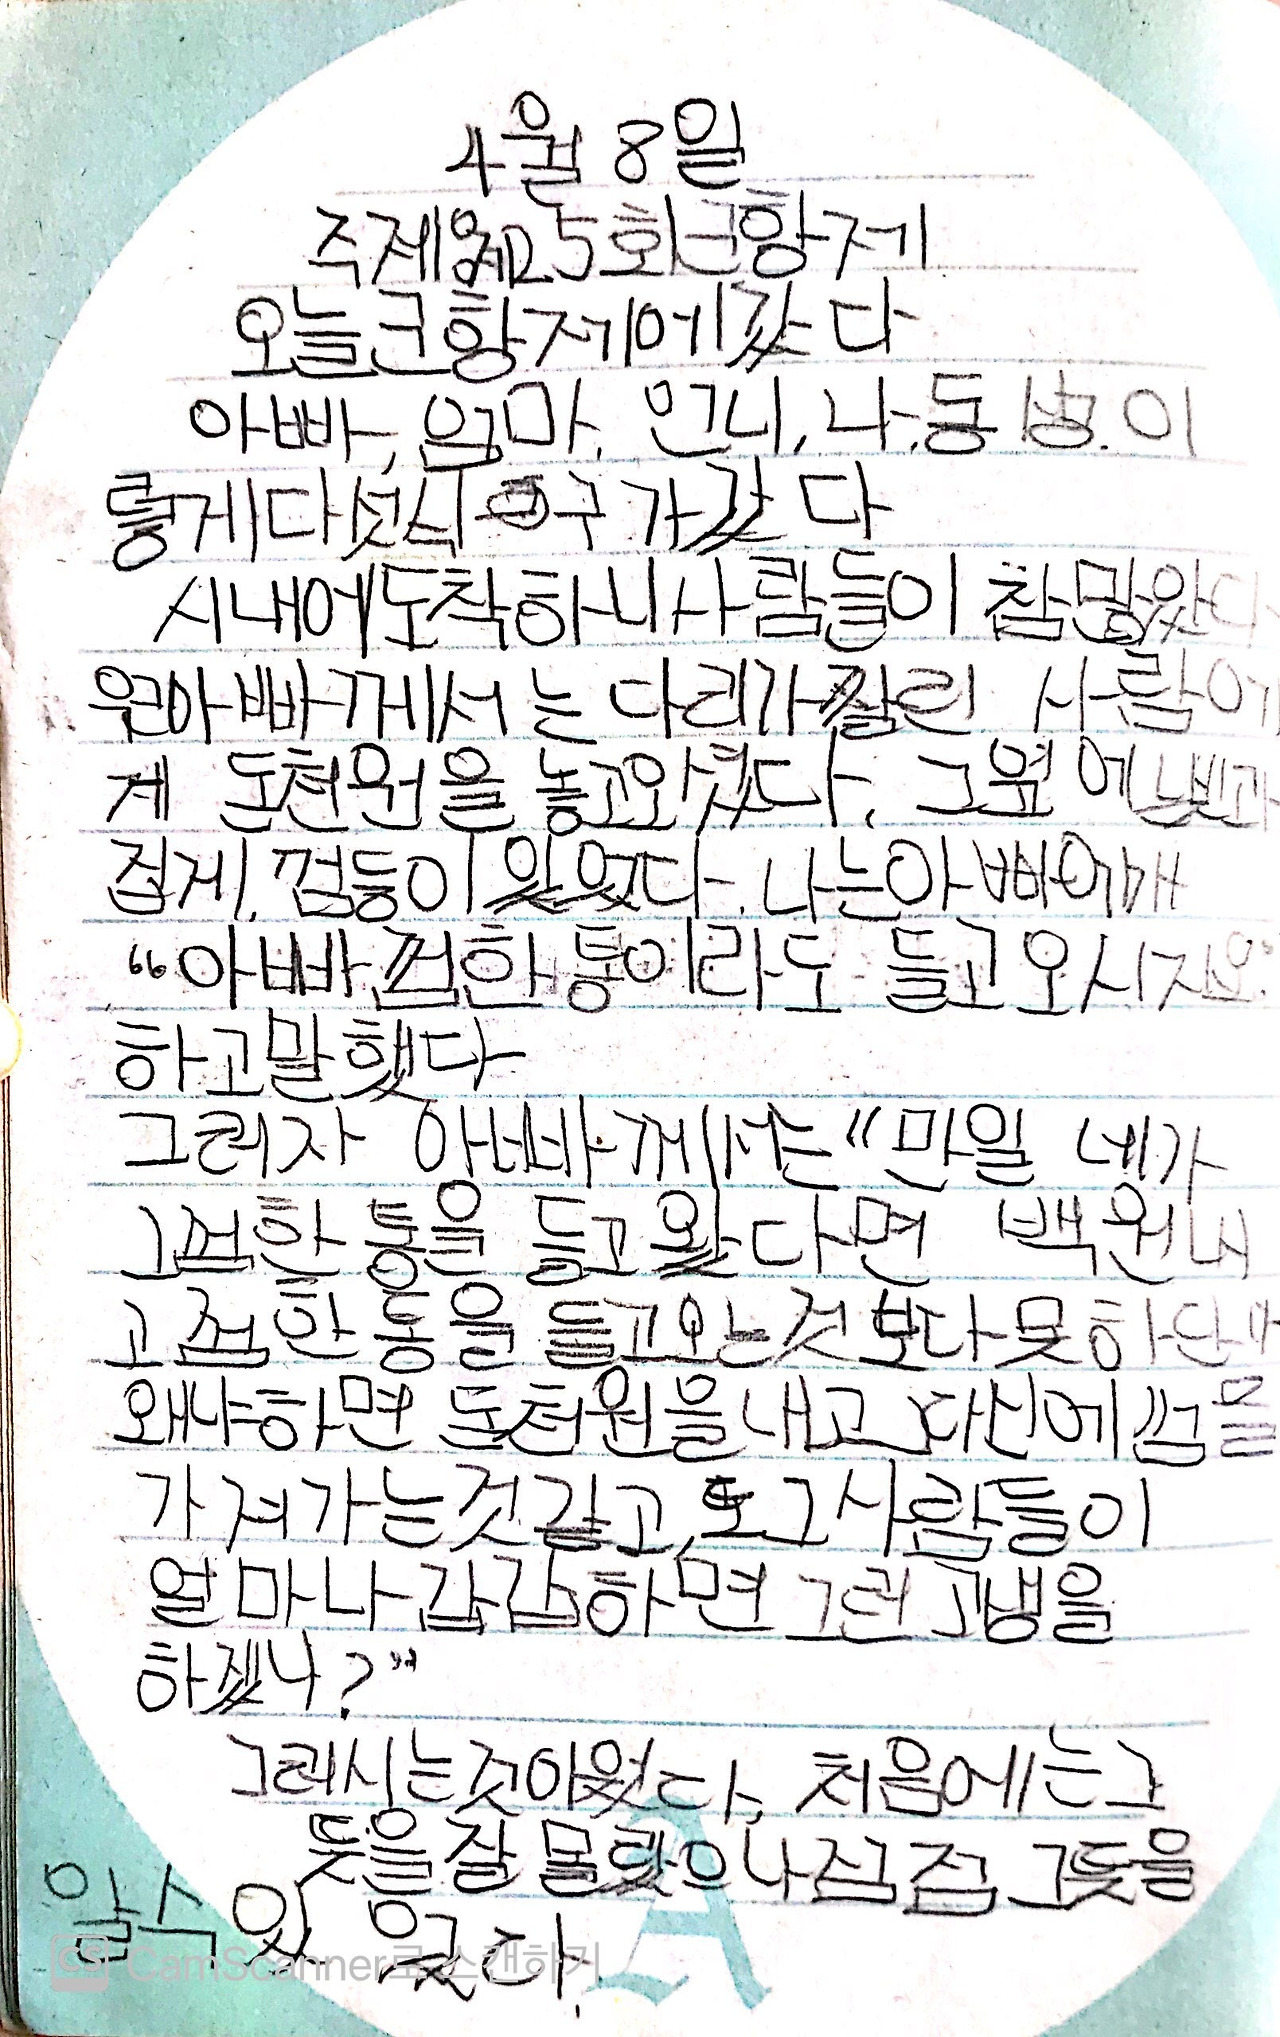 4월 8일
주제 제25회군항제
오늘군항제에갔다
아빠, 엄마, 언니, 나, 동생. 이
렇게다섯식구가갔다
시내에도착하니사람들이 참많았다
아빠께서는 다리가짤린 사람에
게 돈천원을 놓고오셨다. 그옆에는빗과
집게, 껌등이있었다. 나는아빠에게
“아빠, 껌한통이라도 들고오시지요”
하고말했다
그러자 아빠께서는“만일 네가
그껌한통을 들고왔다면 백원내
고 껌한통을 들고오는것보다못하단다
왜냐하면 돈천원을내고 대신에껌을
가져가는것같고, 또그사람들이
얼마나갑갑하면 그런고생을
하겠냐?”
그러시는것이었다, 처음에는그
뜻을잘몰랐으나점점그뜻을
알수있었다.
CS CamScanner로 스캔하기